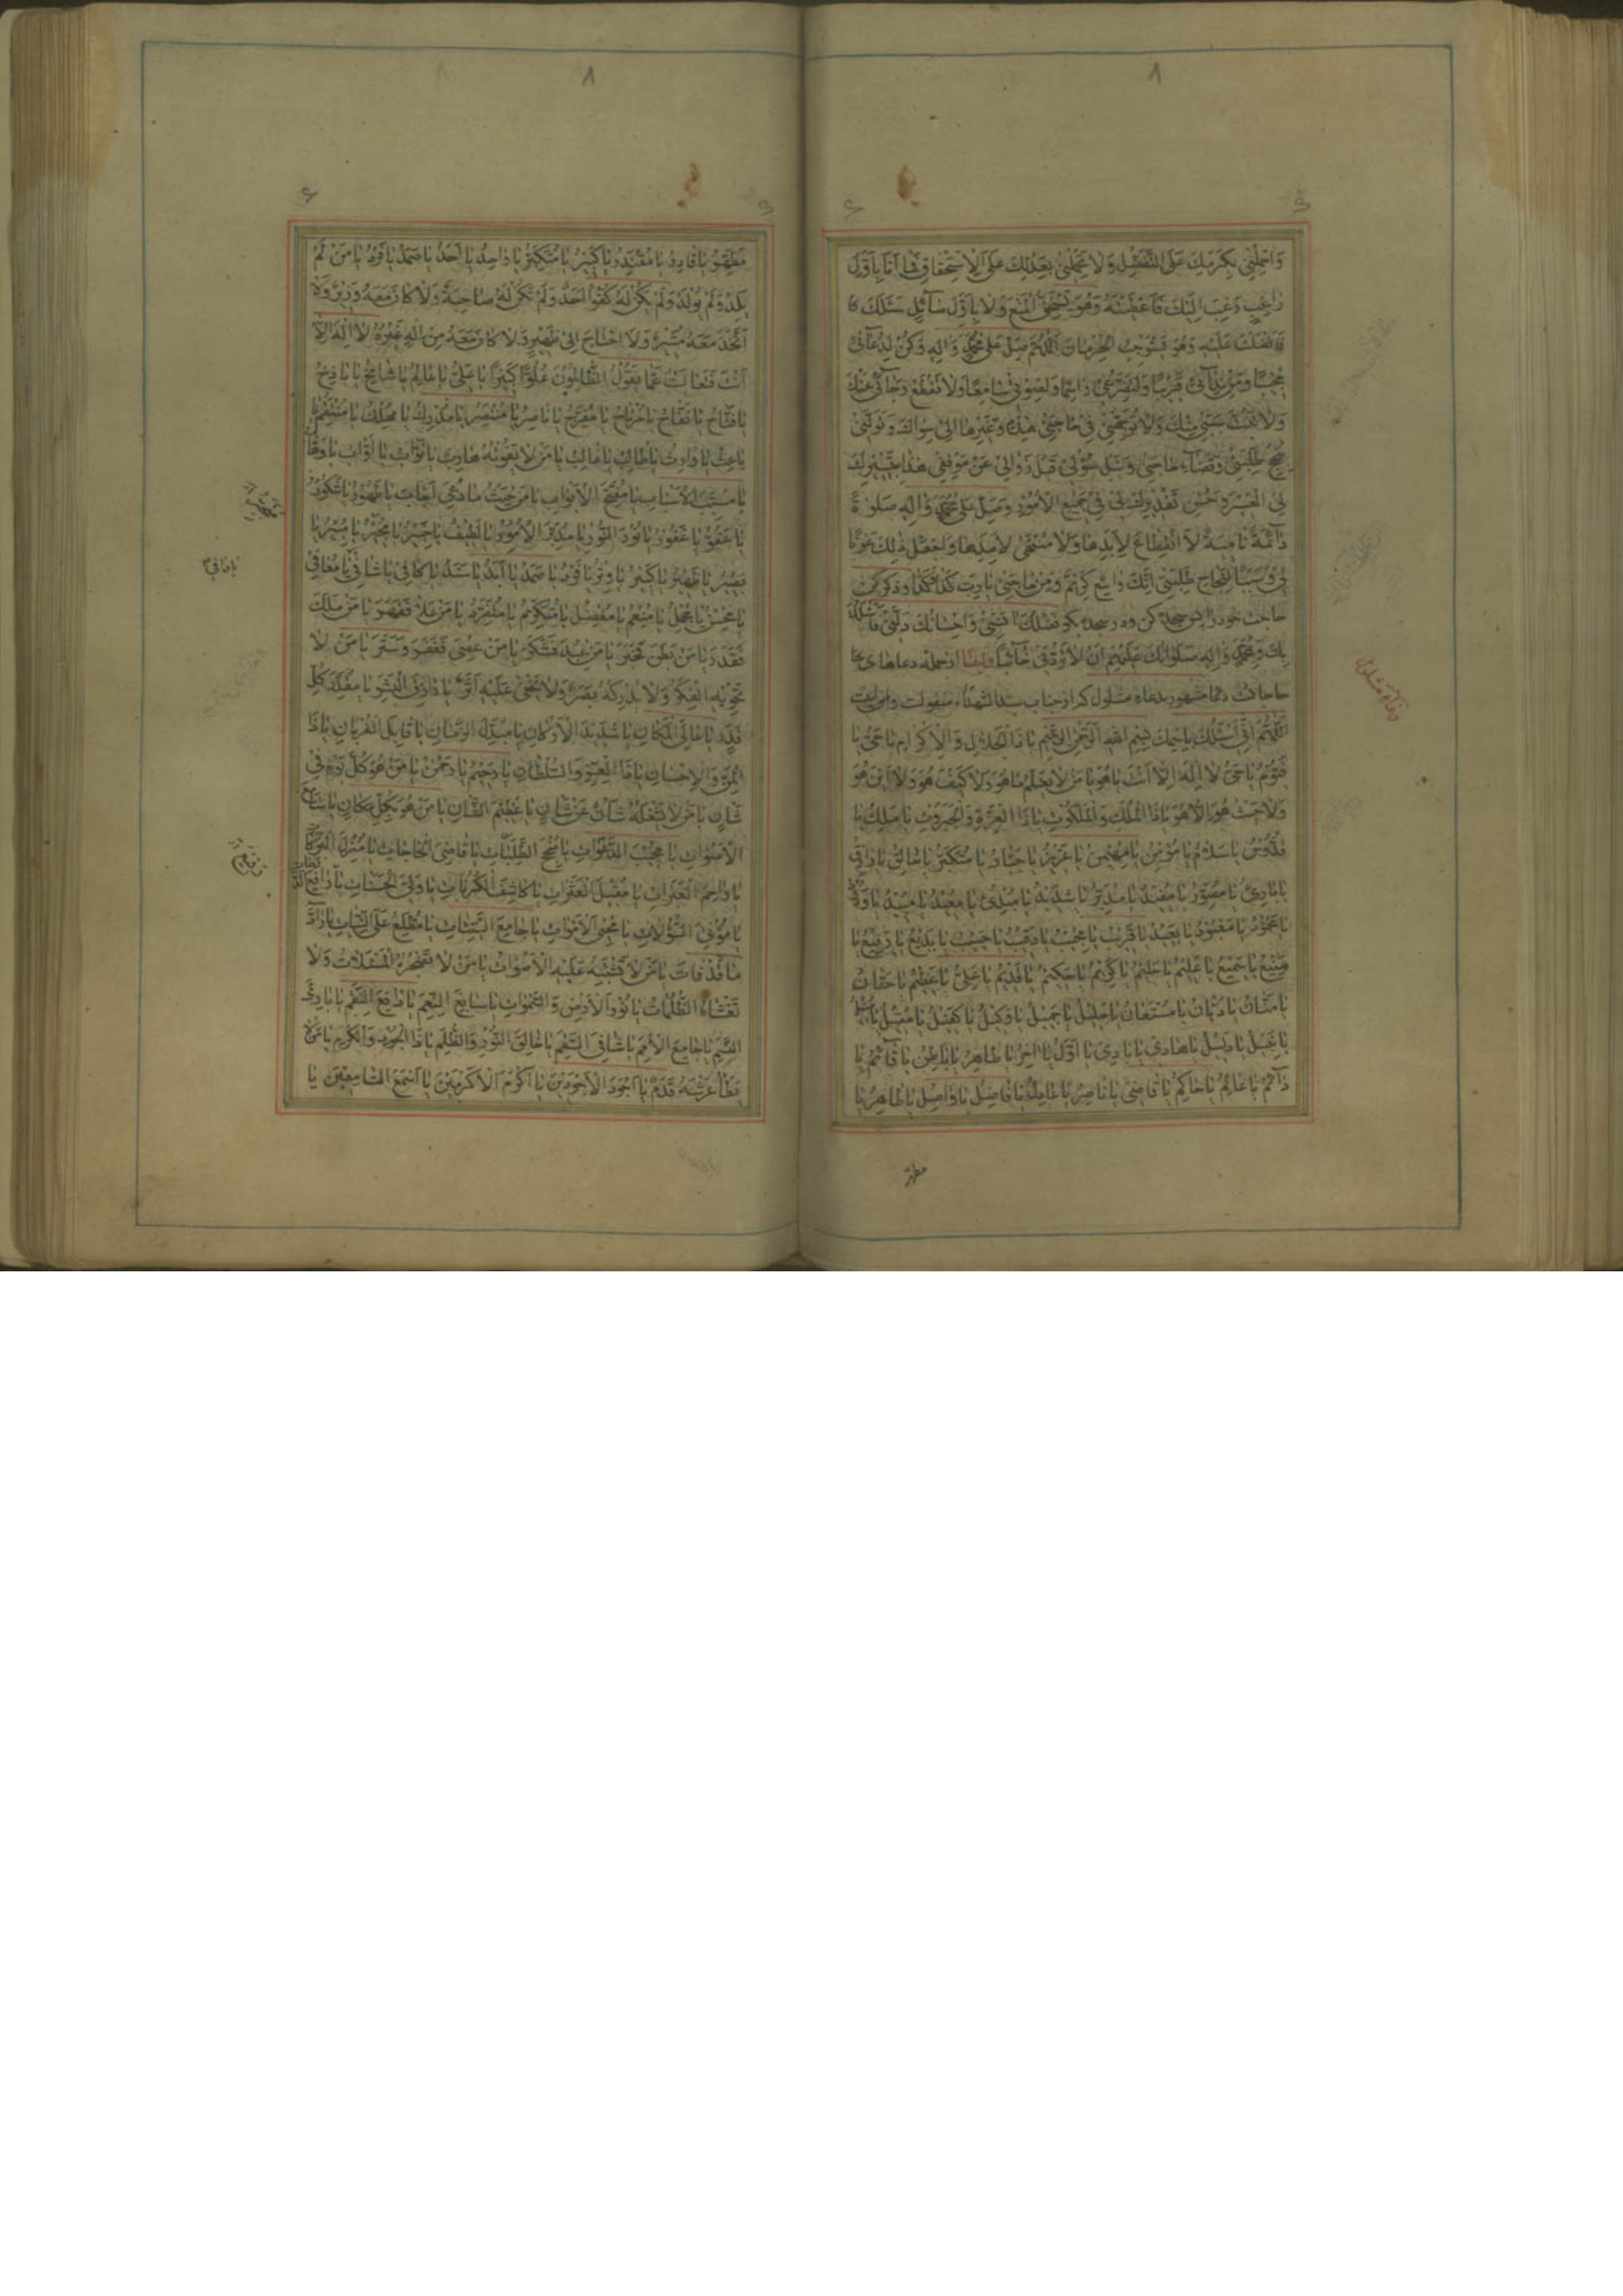 وَاحْمِلْنِي بِكَرَمِكَ عَلَى التَّفَضُّلِ وَلَا تَحْمِلْنِي بِعَدْلِكَ عَلَى الْاِسْتِحْقَاقِ فَمَا اَنَا بِاَوَّلِ
رَاغِبٍ رَغِبَ اِلَيْكَ فَاَعْطَيْتَهُ وَهُوَ يَسْتَحِقُّ الْمَنْعَ وَلَا بِاَوَّلِ سَآئِلٍ سَئَلَكَ فَا
فَاَفْضَلْتَ عَلَيْهِ وَهُوَ يَسْتَوْجِبُ الْحِرْمَانَ اَللّٰهُمَّ صَلِّ عَلٰى مُحَمَّدٍ وَاٰلِهِ وَكُنْ لِدُعَآئِي
مُجِيبًا وَمِنْ نِدَآئِي قَرِيبًا وَلِتَضَرُّعِي رَاحِمًا وَلِصَوْتِي سَامِعًا وَلَا تَقْطَعْ رَجَآئِي عَنْكَ
وَلَا تَبُتَّ سَبَبِي مِنْكَ وَلَا تُوَجِّهْنِي فِي حَاجَتِي هٰذِهِ وَغَيْرِهَا اِلٰى سِوَاكَ وَتَوَلَّنِي
بِنُجْحِ طَلِبَتِي وَقَضَآءِ حَاجَتِي وَنَيْلِ سُؤْلِي قَبْلَ زَوَالِي عَنْ مَوْقِفِي هٰذَا بِتَيْسِيرِكَ
لِيَ الْعَسِيرَ وَحُسْنِ تَقْدِيرِكَ لِي فِي جَمِيعِ الْاُمُورِ وَصَلِّ عَلٰى مُحَمَّدٍ وَاٰلِهِ صَلٰوةً
دَآئِمَةً نَامِيَةً لَا انْقِطَاعَ لِاَبَدِهَا وَلَا مُنْتَهٰى لِاَمَدِهَا وَاجْعَلْ ذٰلِكَ عَوْنًا
لِي وَسَبَبًا لِنَجَاحِ طَلِبَتِي اِنَّكَ وَاسِعٌ كَرِيمٌ وَمِنْ حَاجَتِي يَا رَبِّ كَذَا وَكَذَا وذكر كن
حاجت خود را پس سجده كن ودر سجده بگو فَضْلُكَ اٰنَسَنِي وَاِحْسَانُكَ دَلَّنِي فَاَسْئَلُكَ
بِكَ وَبِمُحَمَّدٍ وَاٰلِهِ صَلَوَاتُكَ عَلَيْهِمْ اَنْ لَا تَرُدَّنِي خَآئِبًا وايضًا از جمله دعاهاى
حاجات دعاء مشهور بدعاء مشلول كه از جناب سيد الشهداء منقولست واين است
اَللّٰهُمَّ اِنِّي اَسْئَلُكَ بِاسْمِكَ بِسْمِ اللّٰهِ الرَّحْمٰنِ الرَّحِيمِ يَا ذَا الْجَلَالِ وَالْاِكْرَامِ يَا حَيُّ يَا
قَيُّومُ يَا حَيُّ لَا اِلٰهَ اِلَّا اَنْتَ يَا هُوَ يَا مَنْ لَا يَعْلَمُ مَا هُوَ وَلَا كَيْفَ هُوَ وَلَا اَيْنَ هُوَ
وَلَا حَيْثُ هُوَ اِلَّا هُوَ يَا ذَا الْمُلْكِ وَالْمَلَكُوتِ يَا ذَا الْعِزَّةِ وَالْجَبَرُوتِ يَا مَلِكُ يَا
قُدُّوسُ يَا سَلَامُ يَا مُؤْمِنُ يَا مُهَيْمِنُ يَا عَزِيزُ يَا جَبَّارُ يَا مُتَكَبِّرُ يَا خَالِقُ يَا
يَا بَارِئُ يَا مُصَوِّرُ يَا مُفِيدُ يَا مُدَبِّرُ يَا شَدِيدُ يَا مُبْدِئُ يَا مُعِيدُ يَا مُبِيدُ يَا وَدُودُ
يَا مَحْمُودُ يَا مَعْبُودُ يَا بَعِيدُ يَا قَرِيبُ يَا مُجِيبُ يَا رَقِيبُ يَا حَسِيبُ يَا بَدِيعُ يَا رَفِيعُ يَا
مَنِيعُ يَا سَمِيعُ يَا عَلِيمُ يَا حَلِيمُ يَا كَرِيمُ يَا حَكِيمُ يَا قَدِيمُ يَا عَلِيُّ يَا عَظِيمُ يَا حَنَّانُ
يَا مَنَّانُ يَا دَيَّانُ يَا مُسْتَعَانُ يَا جَلِيلُ يَا جَمِيلُ يَا وَكِيلُ يَا كَفِيلُ يَا مُقِيلُ يَا
يَا دَلِيلُ يَا هَادِي يَا بَادِي يَا اَوَّلُ يَا اٰخِرُ يَا ظَاهِرُ يَا بَاطِنُ يَا قَآئِمُ يَا
دَآئِمُ يَا عَالِمُ يَا حَاكِمُ يَا قَاضِي يَا نَاصِرُ يَا عَادِلُ يَا فَاضِلُ يَا وَاصِلُ يَا طَاهِرُ يَا
مطهر
مُطَهِّرُ يَا قَادِرُ يَا مُقْتَدِرُ يَا كَبِيرُ يَا مُتَكَبِّرُ يَا وَاحِدُ يَا اَحَدُ يَا صَمَدُ يَا فَرْدُ يَا مَنْ لَمْ
يَلِدْ وَلَمْ يُولَدْ وَلَمْ يَكُنْ لَهُ كُفُوًا اَحَدٌ وَلَمْ تَكُنْ لَهُ صَاحِبَةٌ وَلَا كَانَ مَعَهُ وَزِيرٌ وَلَا
اتَّخَذَ مَعَهُ مُشِيرًا وَلَا احْتَاجَ اِلٰى ظَهِيرٍ وَلَا كَانَ مَعَهُ مِنْ اِلٰهٍ غَيْرُهُ لَا اِلٰهَ اِلَّا
اَنْتَ فَتَعَالَيْتَ عَمَّا يَقُولُ الظَّالِمُونَ عُلُوًّا كَبِيرًا يَا عَلِيُّ يَا عَالِمُ يَا شَامِخُ يَا بَاذِخُ
يَا فَتَّاحُ يَا نَفَّاحُ يَا مُرْتَاحُ يَا مُفَرِّجُ يَا نَاصِرُ يَا مُنْتَصِرُ يَا مُدْرِكُ يَا مُهْلِكُ يَا مُنْتَقِمُ يَا
بَاعِثُ يَا وَارِثُ يَا طَالِبُ يَا غَالِبُ يَا مَنْ لَا يَفُوتُهُ هَارِبٌ يَا تَوَّابُ يَا اَوَّابُ يَا وَهَّابُ
يَا مُسَبِّبَ الْاَسْبَابِ يَا مُفَتِّحَ الْاَبْوَابِ يَا مَنْ حَيْثُ مَا دُعِيَ اَجَابَ يَا طَهُورُ يَا شَكُورُ
يَا عَفُوُّ يَا غَفُورُ يَا نُورَ النُّورِ يَا مُدَبِّرَ الْاُمُورِ يَا لَطِيفُ يَا خَبِيرُ يَا مُجِيرُ يَا مُنِيرُ يَا
بَصِيرُ يَا ظَهِيرُ يَا كَبِيرُ يَا وِتْرُ يَا فَرْدُ يَا صَمَدُ يَا اَبَدُ يَا سَنَدُ يَا كَافِي يَا شَافِي يَا مُعَافِي
يَا مُحْسِنُ يَا مُجْمِلُ يَا مُنْعِمُ يَا مُفْضِلُ يَا مُتَكَرِّمُ يَا مُتَفَرِّدُ يَا مَنْ عَلَا فَقَهَرَ يَا مَنْ مَلَكَ
فَقَدَرَ يَا مَنْ بَطَنَ فَخَبَرَ يَا مَنْ عُبِدَ فَشَكَرَ يَا مَنْ عُصِيَ فَغَفَرَ وَسَتَرَ يَا مَنْ لَا
تَحْوِيهِ الْفِكَرُ وَلَا يُدْرِكُهُ بَصَرٌ وَلَا يَخْفٰى عَلَيْهِ اَثَرٌ يَا رَازِقَ الْبَشَرِ يَا مُقَدِّرَ كُلِّ
قَدَرٍ يَا عَالِيَ الْمَكَانِ يَا شَدِيدَ الْاَرْكَانِ يَا مُبَدِّلَ الزَّمَانِ يَا قَابِلَ الْقُرْبَانِ يَا ذَا
الْمَنِّ وَالْاِحْسَانِ يَا ذَا الْعِزَّةِ وَالسُّلْطَانِ يَا رَحِيمُ يَا رَحْمٰنُ يَا مَنْ هُوَ كُلَّ يَوْمٍ فِي
شَأْنٍ يَا مَنْ لَا يَشْغَلُهُ شَأْنٌ عَنْ شَأْنٍ يَا عَظِيمَ الشَّأْنِ يَا مَنْ هُوَ بِكُلِّ مَكَانٍ يَا سَامِعَ
الْاَصْوَاتِ يَا مُجِيبَ الدَّعَوَاتِ يَا مُنْجِحَ الطَّلِبَاتِ يَا قَاضِيَ الْحَاجَاتِ يَا مُنْزِلَ الْبَرَكَاتِ
يَا رَاحِمَ الْعَبَرَاتِ يَا مُقِيلَ الْعَثَرَاتِ يَا كَاشِفَ الْكُرُبَاتِ يَا وَلِيَّ الْحَسَنَاتِ يَا رَافِعَ الدَّرَجَاتِ
يَا مُؤْتِيَ السُّؤُلَاتِ يَا مُحْيِيَ الْاَمْوَاتِ يَا جَامِعَ الشَّتَاتِ يَا مُطَّلِعُ عَلَى النِّيَّاتِ يَا رَادَّ
مَا قَدْ فَاتَ يَا مَنْ لَا تَشْتَبِهُ عَلَيْهِ الْاَصْوَاتُ يَا مَنْ لَا تُضْجِرُهُ الْمَسْئَلَاتُ وَلَا
تَغْشَاهُ الظُّلُمَاتُ يَا نُورَ الْاَرْضِ وَالسَّمٰوَاتِ يَا سَابِغَ النِّعَمِ يَا دَافِعَ النِّقَمِ يَا بَارِئَ
النَّسَمِ يَا جَامِعَ الْاُمَمِ يَا شَافِيَ السَّقَمِ يَا خَالِقَ النُّورِ وَالظُّلَمِ يَا ذَا الْجُودِ وَالْكَرَمِ يَا مَنْ لَا
يَطَأُ عَرْشَهُ قَدَمٌ يَا اَجْوَدَ الْاَجْوَدِينَ يَا اَكْرَمَ الْاَكْرَمِينَ يَا اَسْمَعَ السَّامِعِينَ يَا